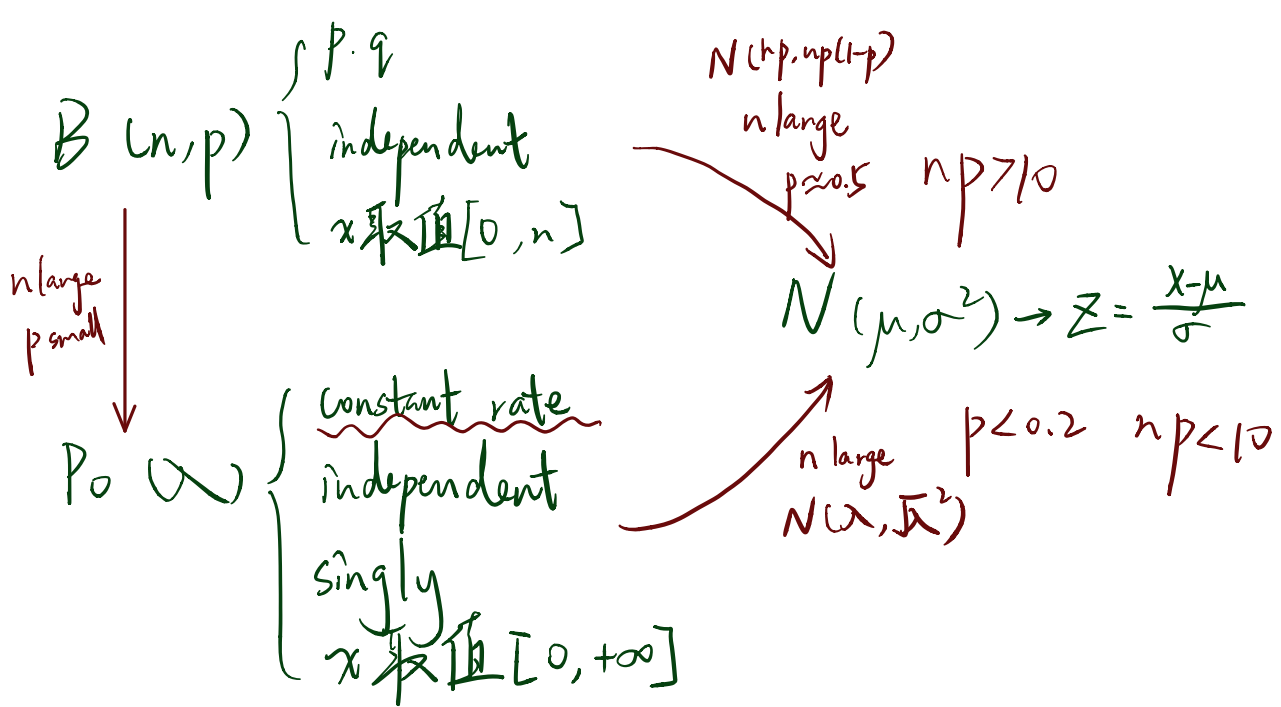 B (n,p)
p.q
independent
x取值[0,n]
n large
p small
Po (λ)
constant rate
independent
singly
x取值[0,+∞]
N(np,np(1-p)
n large
p≈0.5
np>10
N(μ,σ²)→Z=(x-μ)/σ
p<0.2
np<10
n large
N(λ,√λ²)